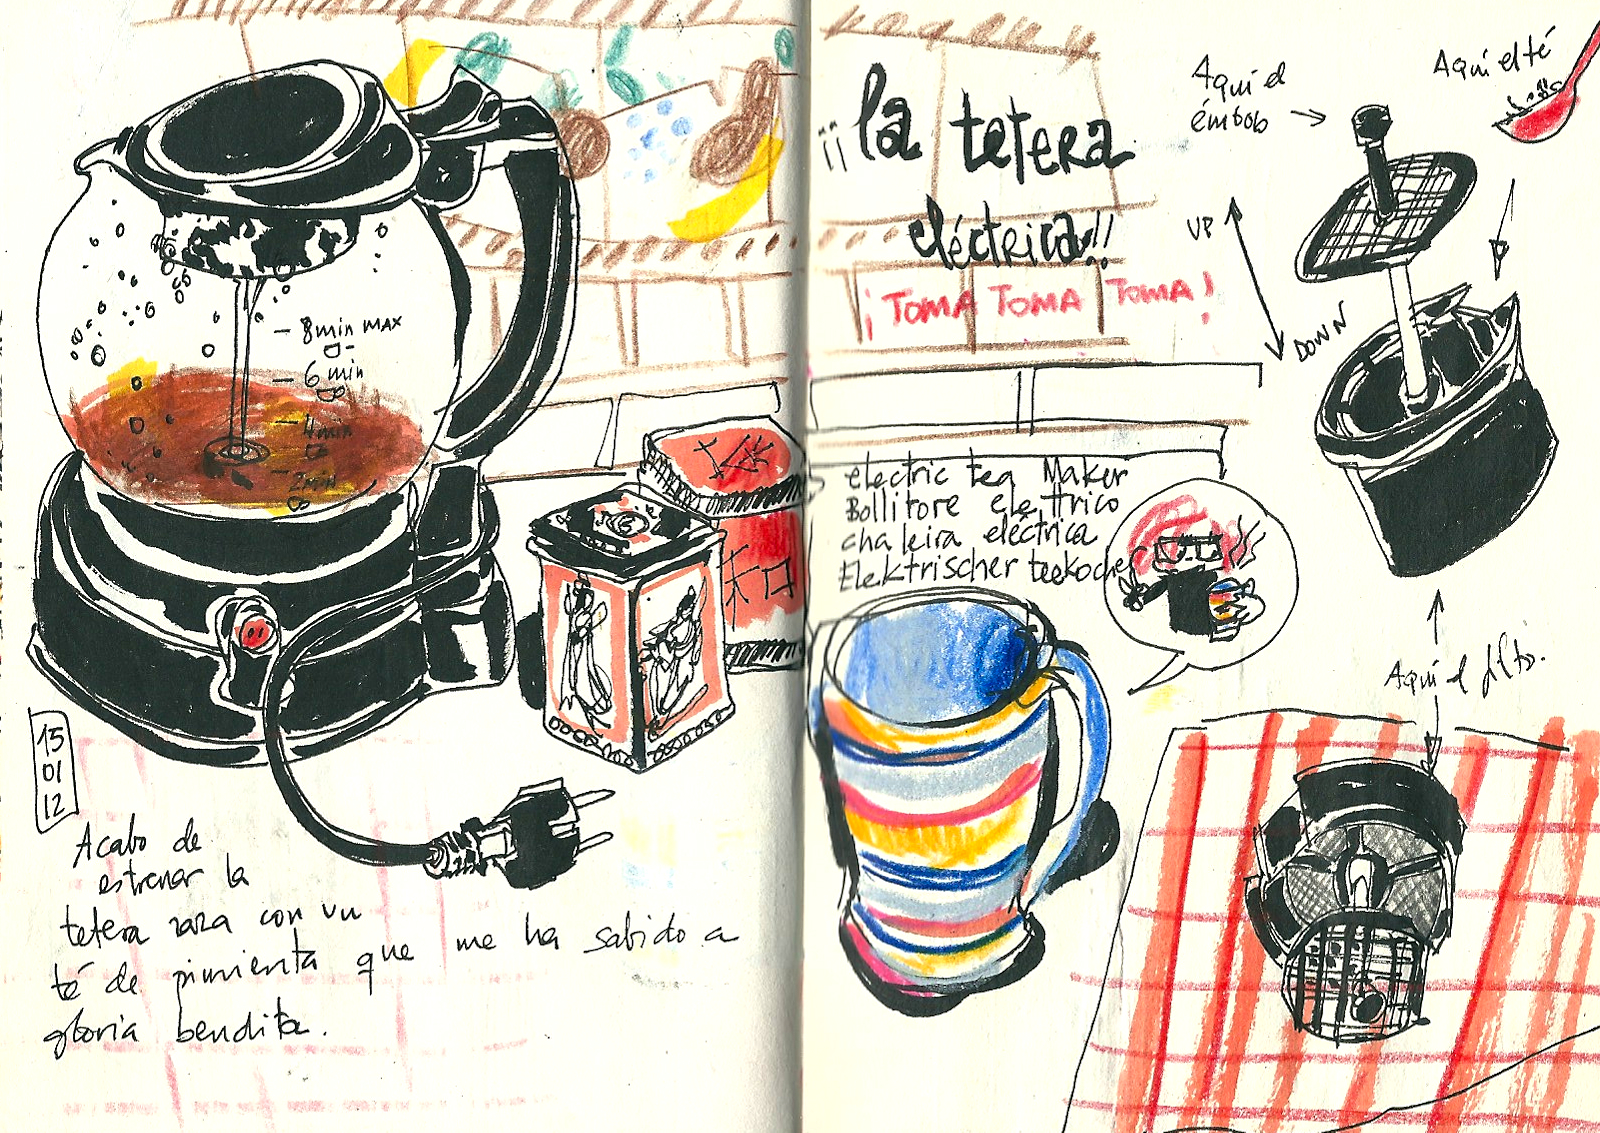 8 min max
6 min
4 min
2 min
15
01
12
Acabo de
estrenar la
tetera rara con un
té de pimienta que me ha sabido a
gloria bendita.
¡¡la tetera
eléctrica!!
¡TOMA TOMA TOMA!
electric tea Maker
Bollitore elettrico
chaleira eléctrica
Elektrischer teekocher
Aquí el
émbolo
Aquí el té
UP
DOWN
Aquí el filtro.